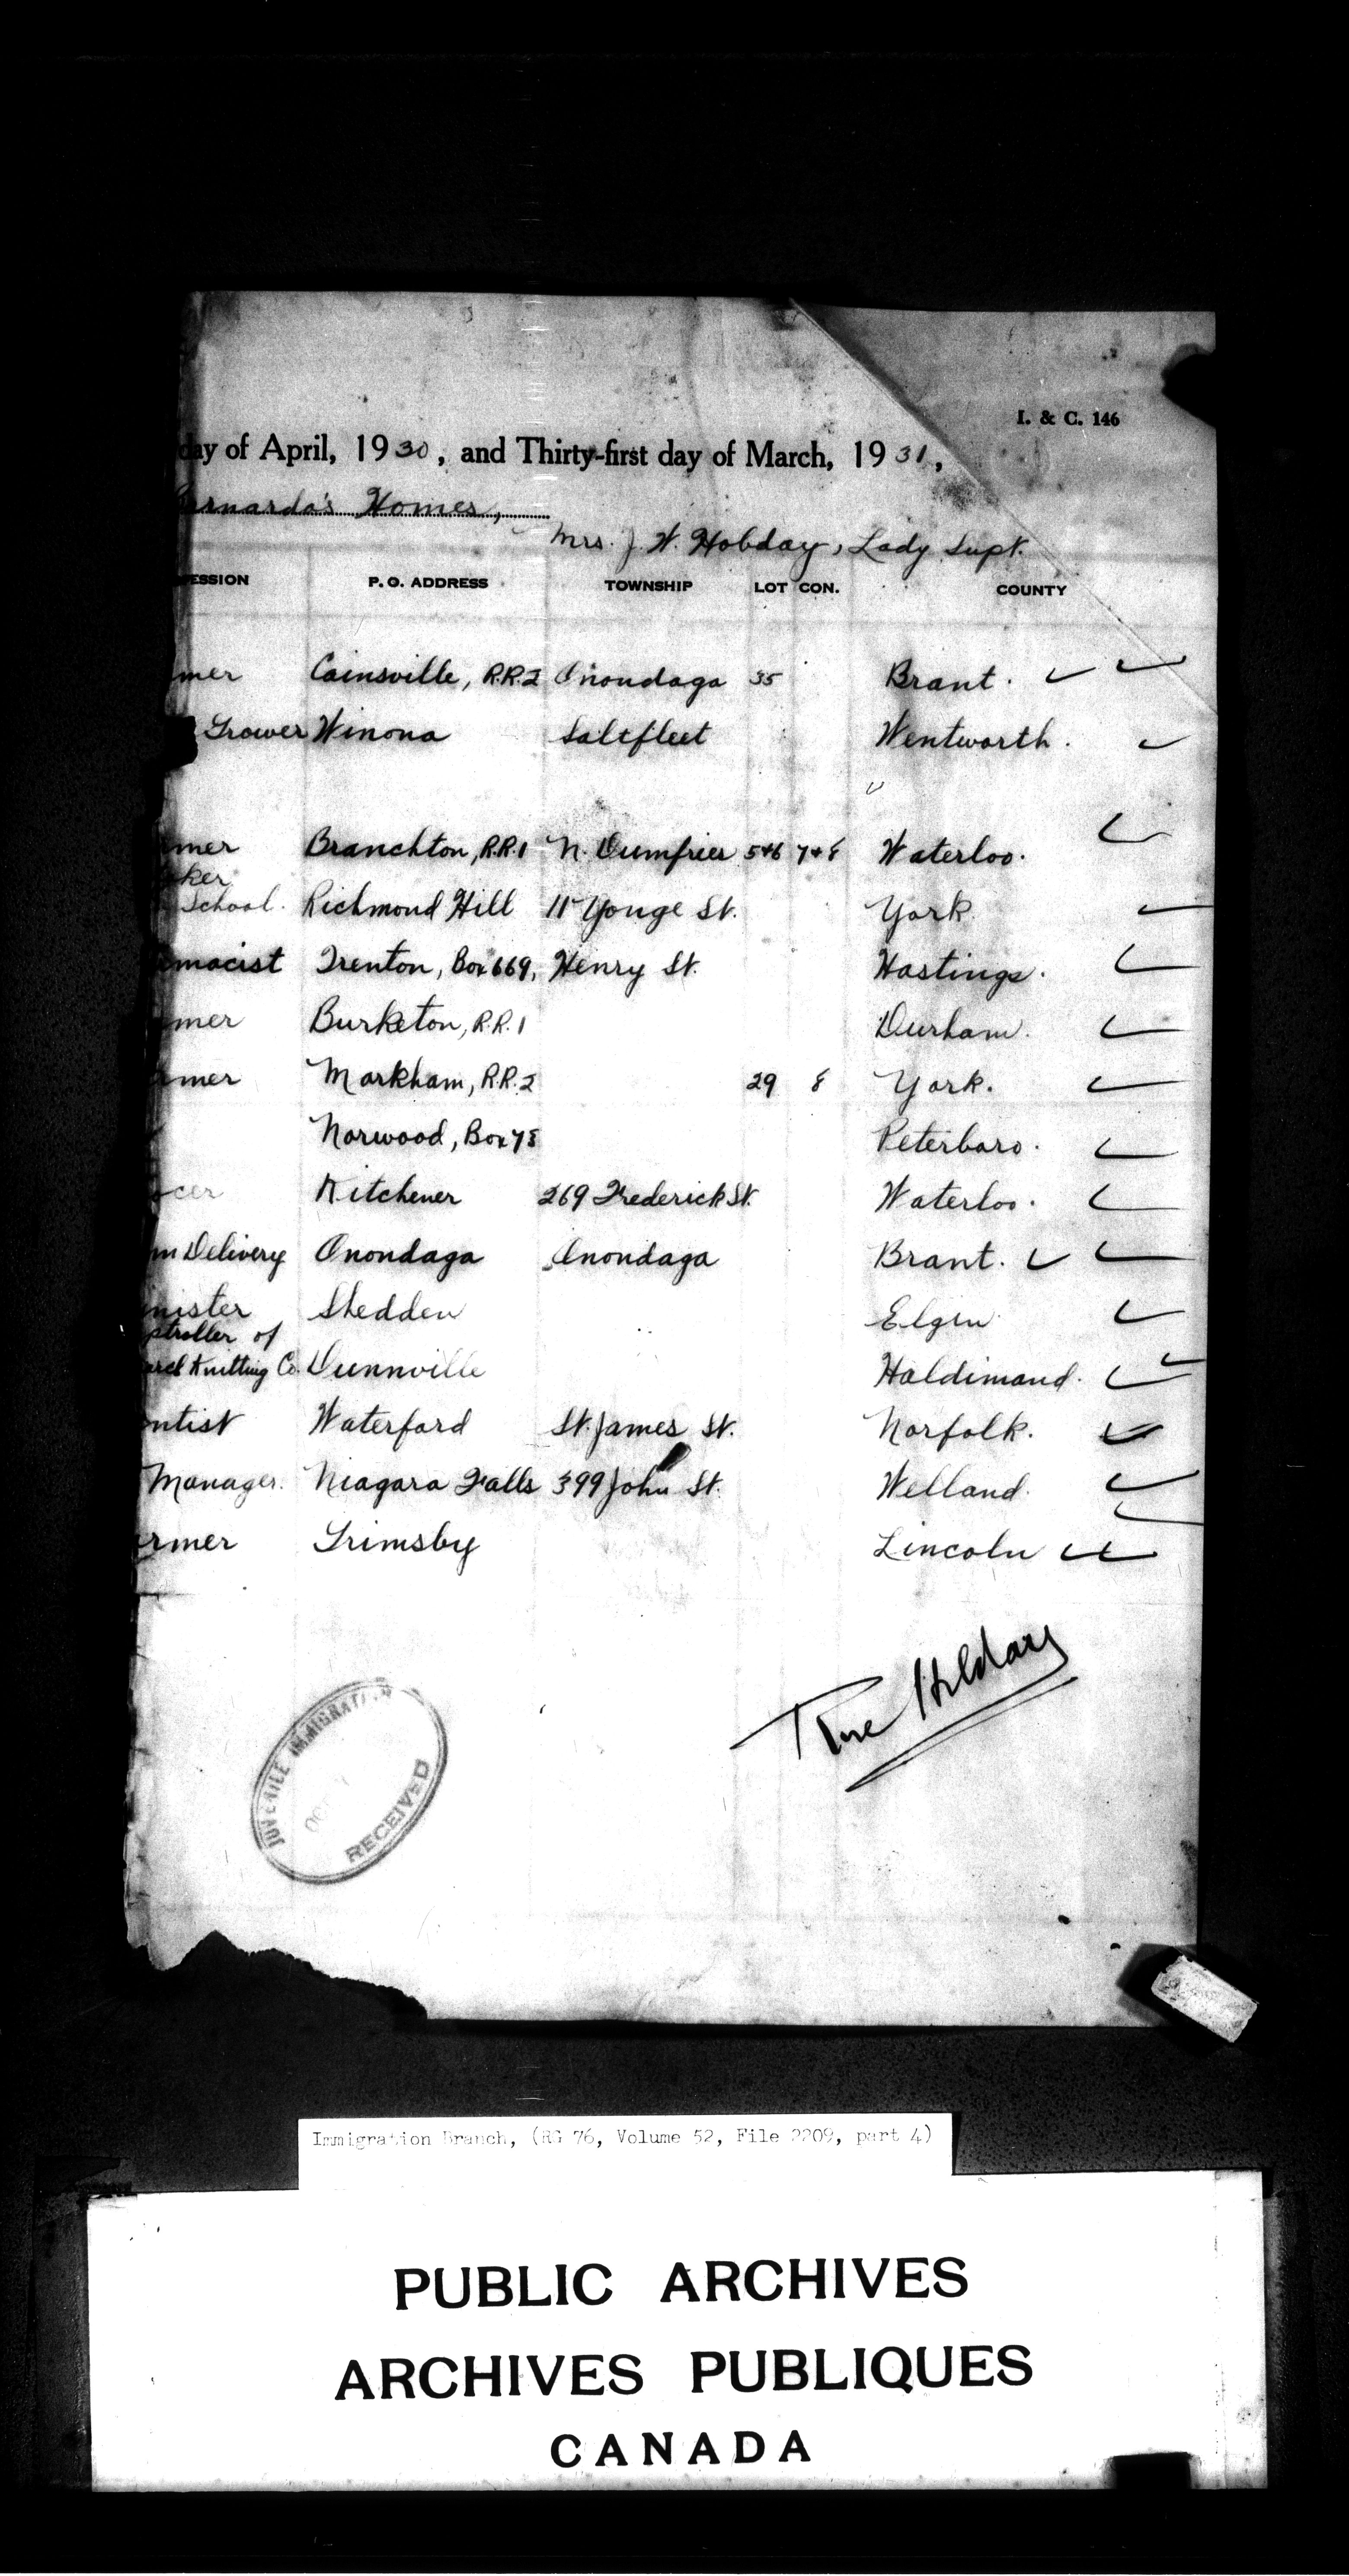 I. & C. 146
day of April, 1930, and Thirty-first day of March, 1931,
arnardo's Homes,
Mrs. J. W. Hobday, Lady Supt.
ESSION P. O. ADDRESS TOWNSHIP LOT CON. COUNTY
mer Cainsville, R.R.2 Onondaga 35 Brant.
Grower Winona Saltfleet Wentworth.
mer Branchton, R.R.1 N. Dumfries 5+6 7+8 Waterloo.
ker
School. Richmond Hill 11 Yonge St. York
macist Trenton, Box 669, Henry St. Hastings.
mer Burketon, R.R.1 Durham.
mer Markham, R.R.2 29 8 York.
Norwood, Box 78 Peterboro.
ocer Kitchener 269 Frederick St. Waterloo.
m Delivery Onondaga Onondaga Brant.
nister Shedden Elgin
ptroller of
arch Knitting Co. Dunnville Haldimand.
ntist Waterford St. James St. Norfolk.
Manager. Niagara Falls 399 John St. Welland.
rmer Grimsby Lincoln
Rose Hobday
JUVENILE IMMIGRATION
RECEIVED
Immigration Branch, (RG 76, Volume 52, File 2209, part 4)
PUBLIC ARCHIVES
ARCHIVES PUBLIQUES
CANADA